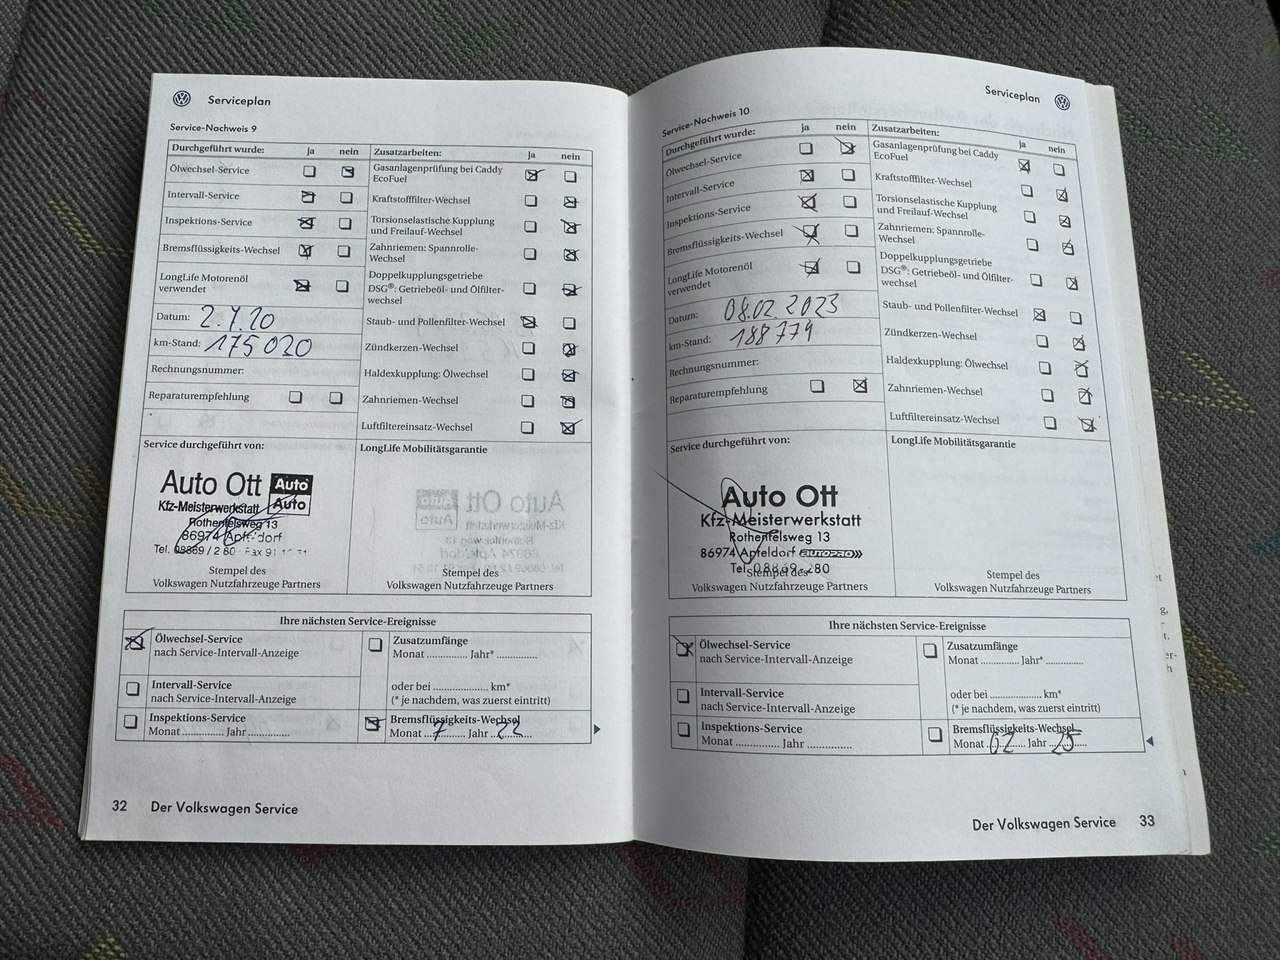 Serviceplan
Service-Nachweis 9
Durchgeführt wurde: ja nein Zusatzarbeiten: ja nein
Ölwechsel-Service
Gasanlagenprüfung bei Caddy
EcoFuel
Intervall-Service
Kraftstofffilter-Wechsel
Inspektions-Service
Torsionselastische Kupplung
und Freilauf-Wechsel
Bremsflüssigkeits-Wechsel
Zahnriemen: Spannrolle-
Wechsel
LongLife Motorenöl
verwendet
Doppelkupplungsgetriebe
DSG®: Getriebeöl- und Ölfilter-
wechsel
Datum: 2.7.20
Staub- und Pollenfilter-Wechsel
km-Stand: 175 020
Zündkerzen-Wechsel
Rechnungsnummer:
Haldexkupplung: Ölwechsel
Reparaturempfehlung
Zahnriemen-Wechsel
Luftfiltereinsatz-Wechsel
Service durchgeführt von:
LongLife Mobilitätsgarantie
Auto Ott Auto
Auto
Kfz-Meisterwerkstatt
Rothenfelsweg 13
86974 Apfeldorf
Tel. 08869 / 2 80 · Fax 91
Stempel des
Volkswagen Nutzfahrzeuge Partners
Stempel des
Volkswagen Nutzfahrzeuge Partners
Ihre nächsten Service-Ereignisse
Ölwechsel-Service
nach Service-Intervall-Anzeige
Zusatzumfänge
Monat .............. Jahr* ..............
oder bei .................... km*
(* je nachdem, was zuerst eintritt)
Intervall-Service
nach Service-Intervall-Anzeige
Inspektions-Service
Monat .............. Jahr ..............
Bremsflüssigkeits-Wechsel
Monat 7 Jahr 22
32 Der Volkswagen Service
Serviceplan
Service-Nachweis 10
Durchgeführt wurde: ja nein Zusatzarbeiten: ja nein
Ölwechsel-Service
Gasanlagenprüfung bei Caddy
EcoFuel
Intervall-Service
Kraftstofffilter-Wechsel
Inspektions-Service
Torsionselastische Kupplung
und Freilauf-Wechsel
Bremsflüssigkeits-Wechsel
Zahnriemen: Spannrolle-
Wechsel
LongLife Motorenöl
verwendet
Doppelkupplungsgetriebe
DSG®: Getriebeöl- und Ölfilter-
wechsel
Datum: 08.02.2023
Staub- und Pollenfilter-Wechsel
km-Stand: 188 779
Zündkerzen-Wechsel
Rechnungsnummer:
Haldexkupplung: Ölwechsel
Reparaturempfehlung
Zahnriemen-Wechsel
Luftfiltereinsatz-Wechsel
Service durchgeführt von:
LongLife Mobilitätsgarantie
Auto Ott
Kfz-Meisterwerkstatt
Rothenfelsweg 13
86974 Apfeldorf AUTOPRO
Tel. 08869-280
Stempel des
Volkswagen Nutzfahrzeuge Partners
Stempel des
Volkswagen Nutzfahrzeuge Partners
Ihre nächsten Service-Ereignisse
Ölwechsel-Service
nach Service-Intervall-Anzeige
Zusatzumfänge
Monat .............. Jahr* ..............
oder bei .................... km*
(* je nachdem, was zuerst eintritt)
Intervall-Service
nach Service-Intervall-Anzeige
Inspektions-Service
Monat .............. Jahr ..............
Bremsflüssigkeits-Wechsel
Monat 02 Jahr 25
Der Volkswagen Service 33